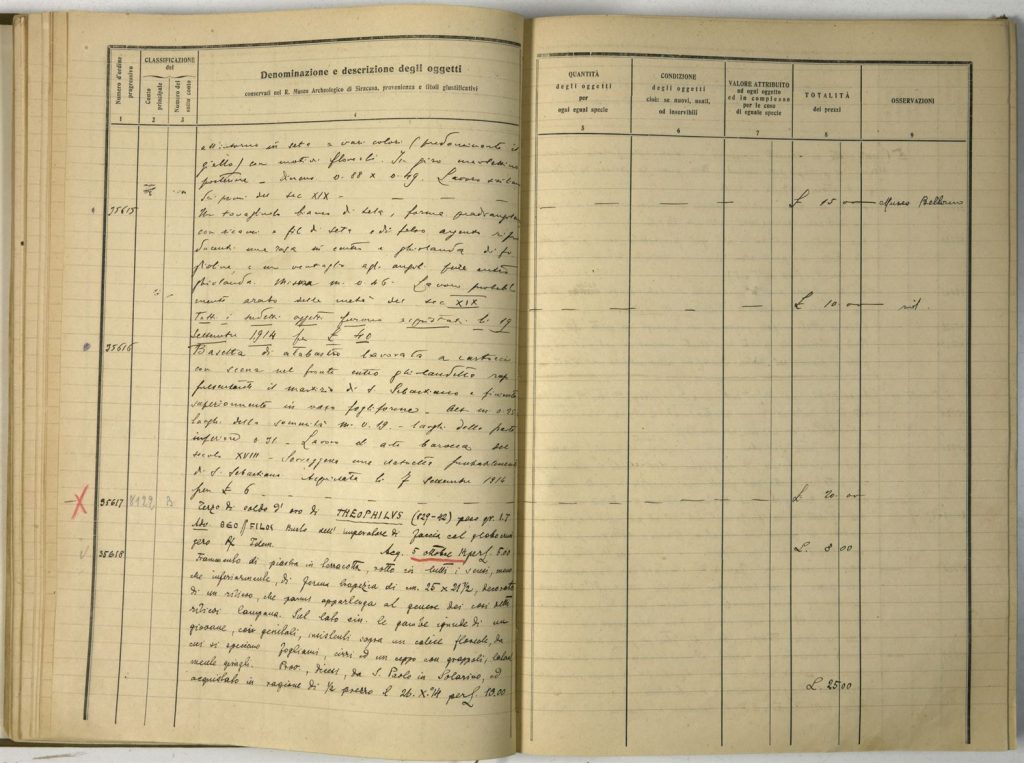 Numero d'ordine progressivo
CLASSIFICAZIONE del
Conto principale
Numero del sotto conto
Denominazione e descrizione degli oggetti
conservati nel R. Museo Archeologico di Siracusa, provenienza e titoli giustificativi
QUANTITÀ degli oggetti per ogni egual specie
CONDIZIONE degli oggetti cioè: se nuovi, usati, od inservibili
VALORE ATTRIBUITO ad ogni oggetto ed in complesso per le cose di eguale specie
TOTALITÀ dei prezzi
OSSERVAZIONI
1 2 3 4 5 6 7 8 9
attorno in seta a vari colori (predominante il
giallo) con motivi floreali. In giro
posteriore - 0.88 x 0.49. Lavoro
dei primi del sec XIX - £ 15 Museo Bellomo
35615 Un tovagliolo bianco di seta, forma quadrangolare
con ricami a fil di seta e di
una rosa in centro e ghirlanda di
e un ventaglio agli angoli entro
ghirlanda. Misura m. 0.46 - Lavoro probabil
mente arabo della metà del sec XIX £ 10 id.
Tutti i sudetti oggetti furono acquistati li 19
Settembre 1914 per £ 40
35616 Basetta di alabastro lavorata a cartocci
con scena nel fronte entro ghirlandetta rap
presentante il martirio di S. Sebastiano e
superiormente in vaso fogliforme - Alt m. 0.25
largh. della sommità m. 0.19 - largh. della parte
inferiore 0.31 - Lavoro di arte barocca del
secolo XVIII - Sorreggeva una statuetta probabilmente
di S. Sebastiano. Acquistata li 7 Settembre 1914
per £ 6 £ 20 00
X 35617 8129 B Terzo di soldo d'oro di THEOPHILVS (829-42) peso gr. 1.7
ΘΕΟFILOS Busto dell'imperatore di faccia col globo cruci
gero R/ Idem. Acq. 5 ottobre 14 per L. 8.00 L. 8 00
35618 Frammento di piastra in terracotta, rotto in tutti i sensi, meno
che inferiormente, di forma trapezia di cm. 25 x 21 1/2, decorata
di un rilievo, che pare appartenga al genere dei così detti
rilievi Campana. Sul lato sin. le gambe ignude di un
giovane, coi genitali, insistenti sopra un calice floreale, da
cui si spiccano fogliami, cirri ed un ceppo con grappoli,
mente giragli. Prov., dicesi, da S. Paolo in Solarino, ed
acquistato in ragione di 1/2 prezzo il 26.X.'14 per L. 19.00 L. 25 00